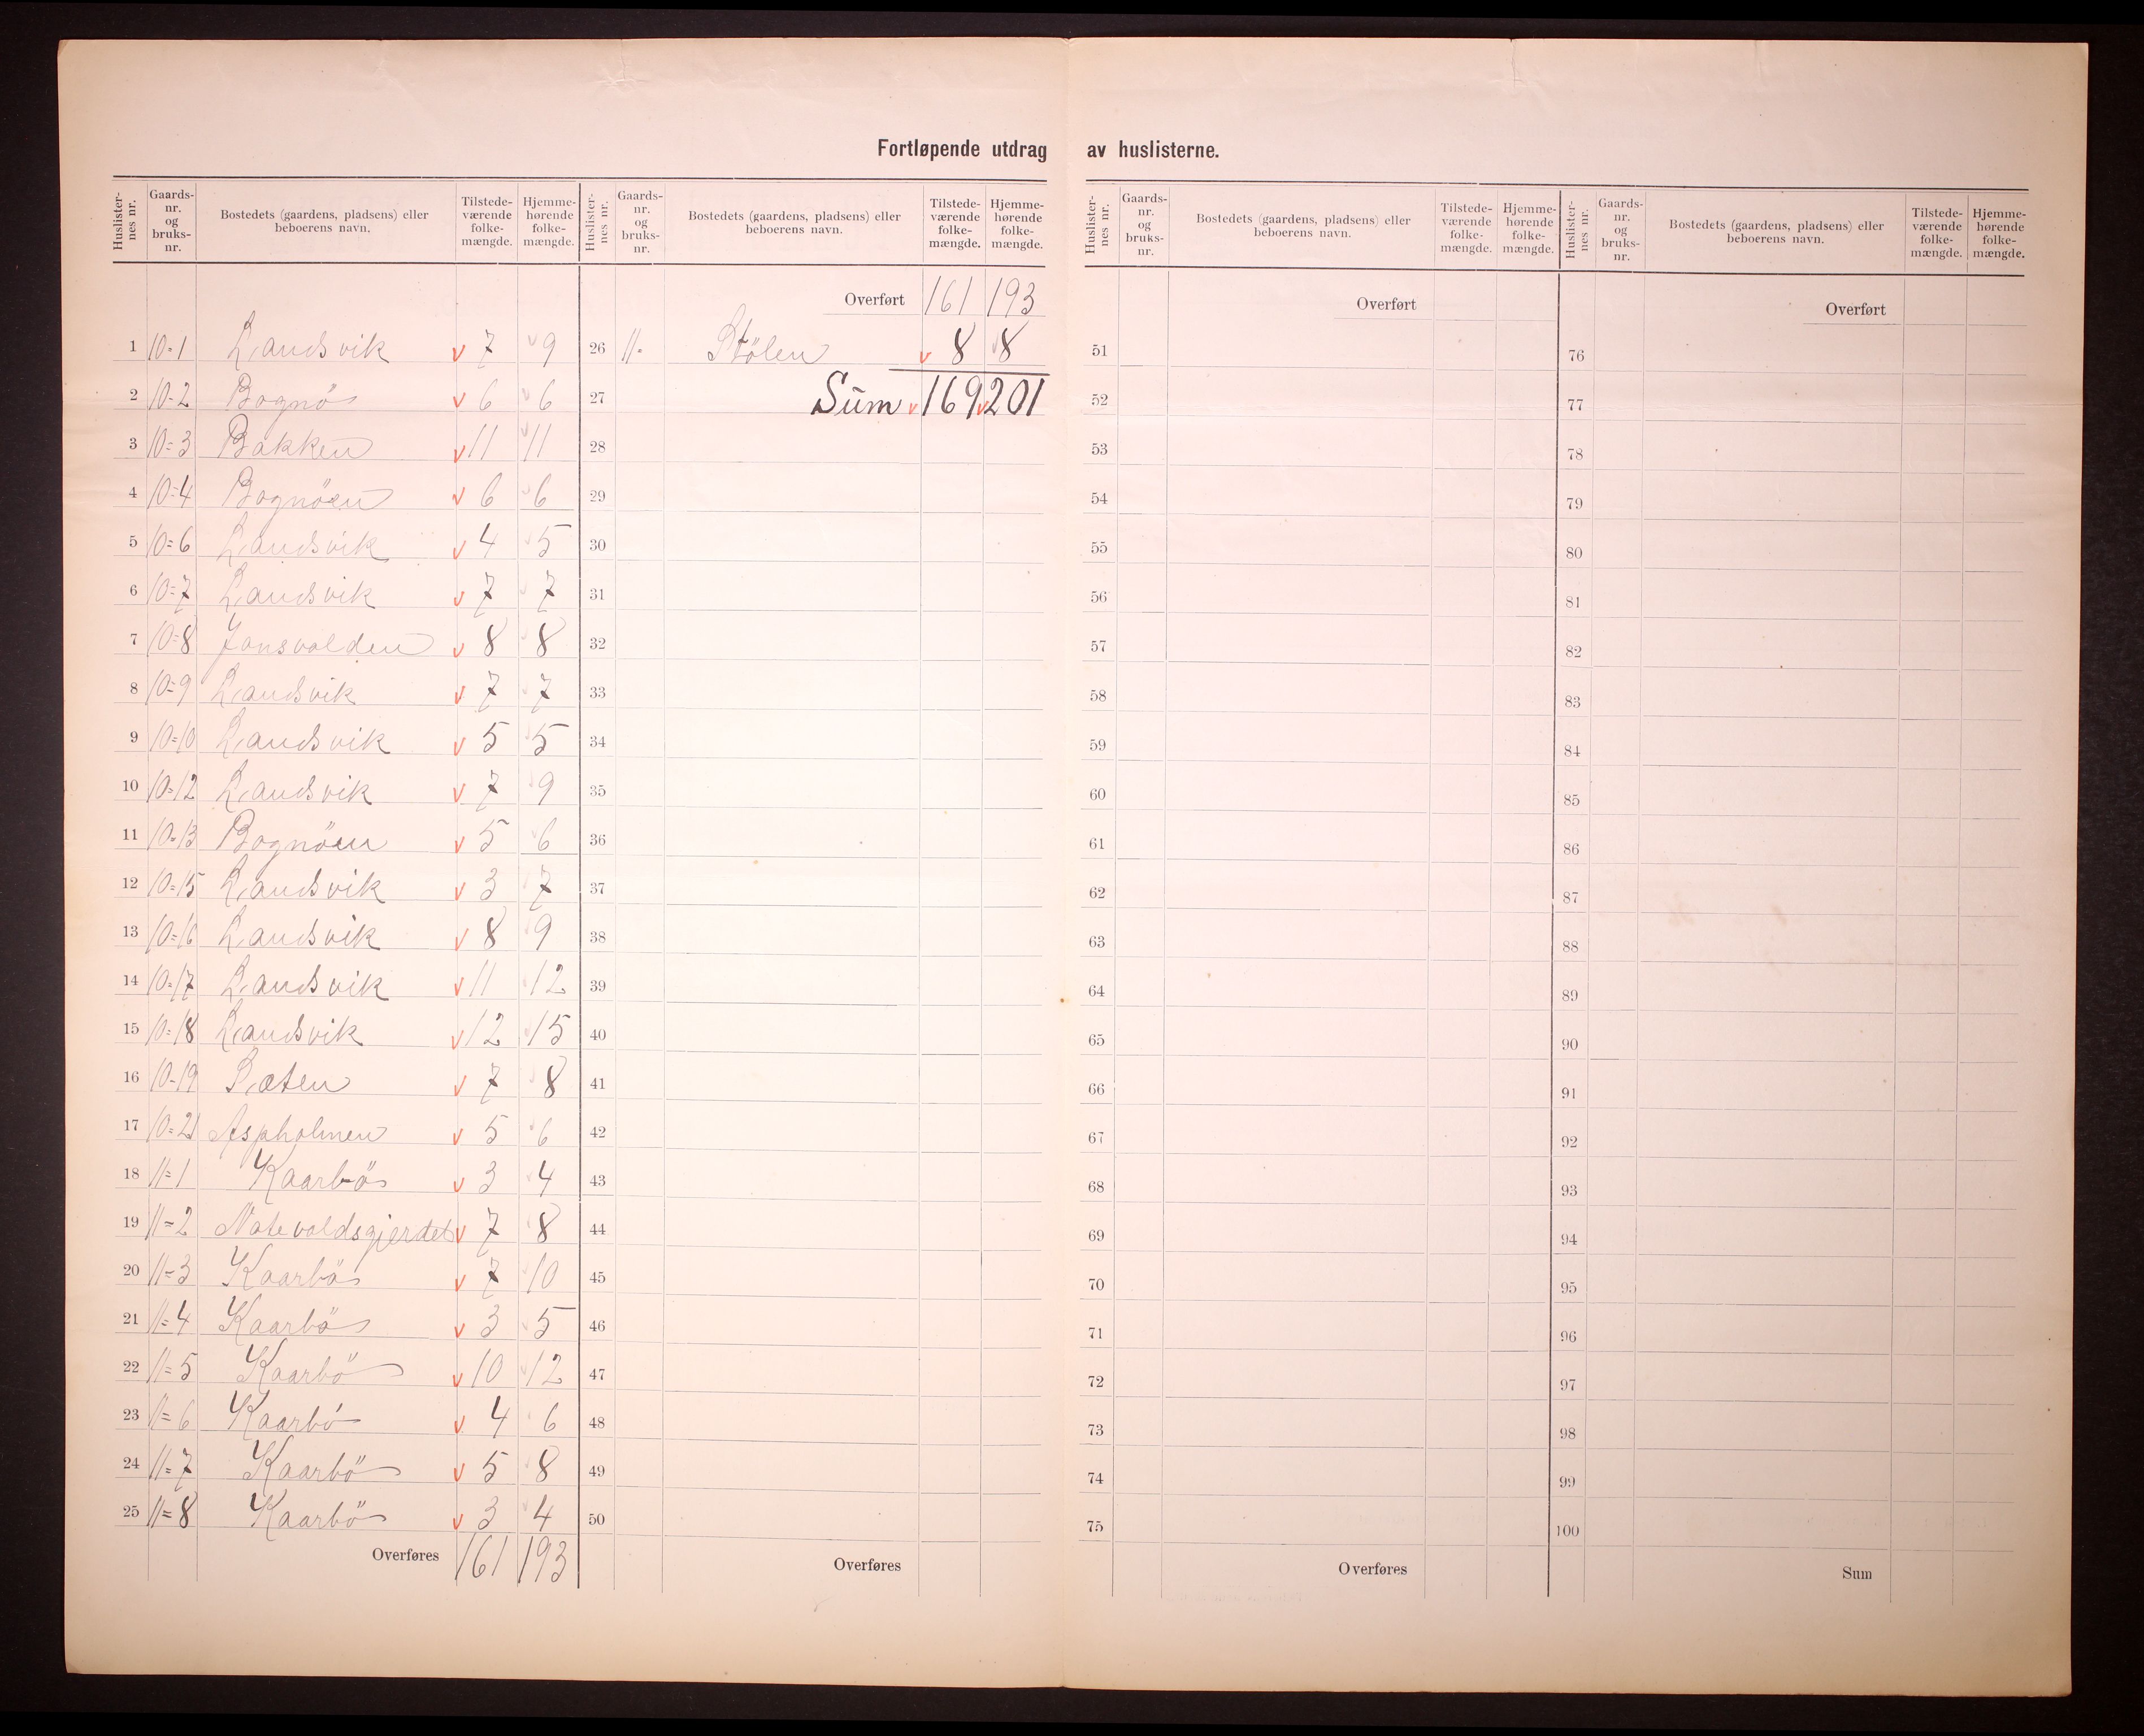 Fortløpende utdrag av huslisterne.
Huslister-nes nr. Gaards-nr. og bruks-nr. Bostedets (gaardens, pladsens) eller beboerens navn. Tilstede-værende folke-mængde. Hjemme-hørende folke-mængde.
1 10=1 Landsvik 7 9
2 10=2 Bognö 6 6
3 10=3 Bakken 11 11
4 10=4 Bognöen 6 6
5 10=6 Landsvik 4 5
6 10=7 Landsvik 7 7
7 10=8 Jonsvolden 8 8
8 10=9 Landsvik 7 7
9 10=10 Landsvik 5 5
10 10=12 Landsvik 7 9
11 10=13 Bognöen 5 6
12 10=15 Landsvik 3 7
13 10=16 Landsvik 8 9
14 10=17 Landsvik 11 12
15 10=18 Landsvik 12 15
16 10-19 7 8
17 10=21 Aspholmen 5 6
18 11=1 Kaarbö 3 4
19 11=2 Natevoldsgjerdet 7 8
20 11=3 Kaarbö 7 10
21 11=4 Kaarbö 3 5
22 11=5 Kaarbö 10 12
23 11=6 Kaarbö 4 6
24 11=7 Kaarbö 5 8
25 11=8 Kaarbö 3 4
Overføres 161 193
Huslister-nes nr. Gaards-nr. og bruks-nr. Bostedets (gaardens, pladsens) eller beboerens navn. Tilstede-værende folke-mængde. Hjemme-hørende folke-mængde.
Overført 161 193
26 11. Stölen 8 8
27 Sum 169 201
28
29
30
31
32
33
34
35
36
37
38
39
40
41
42
43
44
45
46
47
48
49
50
Overføres
Huslister-nes nr. Gaards-nr. og bruks-nr. Bostedets (gaardens, pladsens) eller beboerens navn. Tilstede-værende folke-mængde. Hjemme-hørende folke-mængde.
Overført
51
52
53
54
55
56
57
58
59
60
61
62
63
64
65
66
67
68
69
70
71
72
73
74
75
Overføres
Huslister-nes nr. Gaards-nr. og bruks-nr. Bostedets (gaardens, pladsens) eller beboerens navn. Tilstede-værende folke-mængde. Hjemme-hørende folke-mængde.
Overført
76
77
78
79
80
81
82
83
84
85
86
87
88
89
90
91
92
93
94
95
96
97
98
99
100
Sum